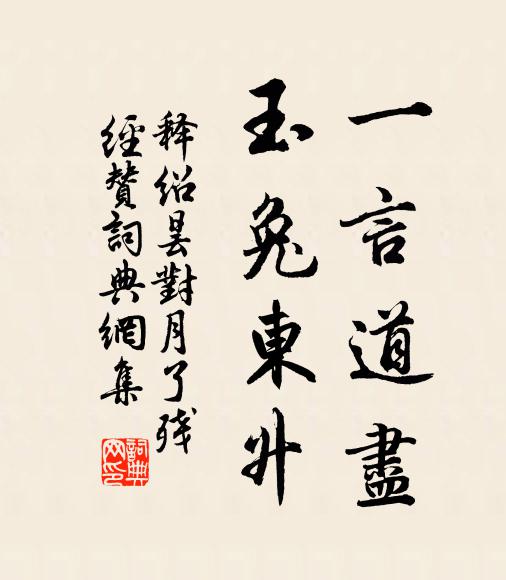 一言道盡
玉兔東升
釋紹曇對月了殘
經贊詞典網集
詞典
网印